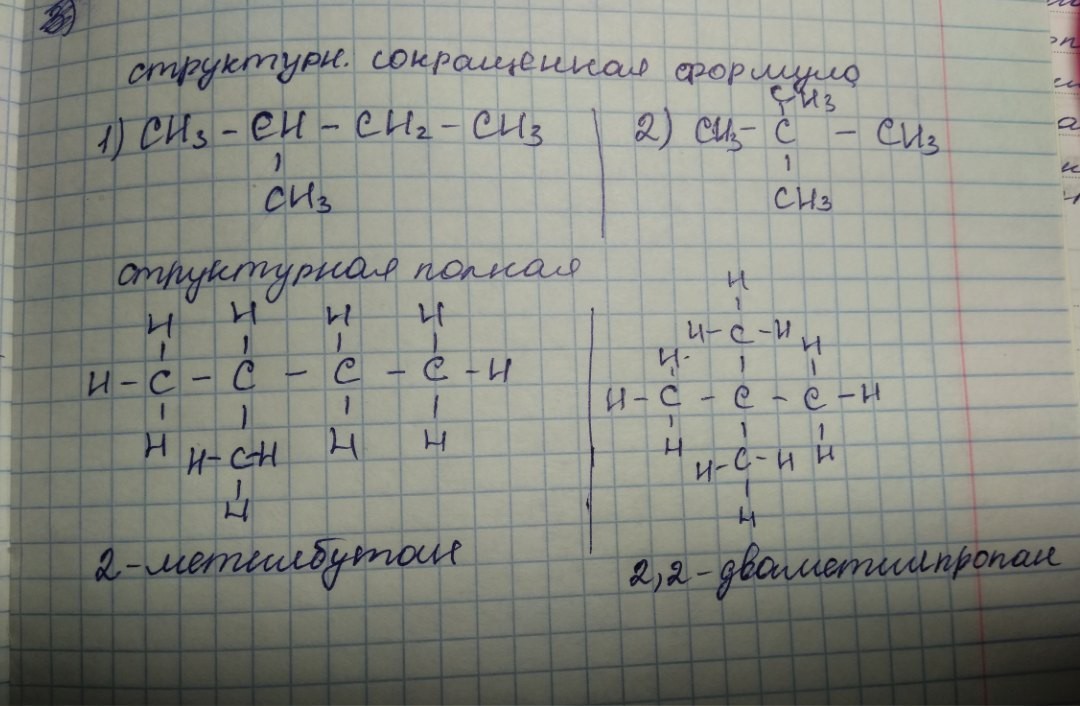 3)
структурн. сокращенная формула
1) CH3 - CH - CH2 - CH3
CH3
CH3
2) CH3 - C - CH3
CH3
структурная полная
H H H H
H - C - C - C - C - H
H H-C-H H H
H
H
H-C-H
H H
H - C - C - C - H
H H-C-H H
H
2-метилбутан
2,2-дваметилпропан